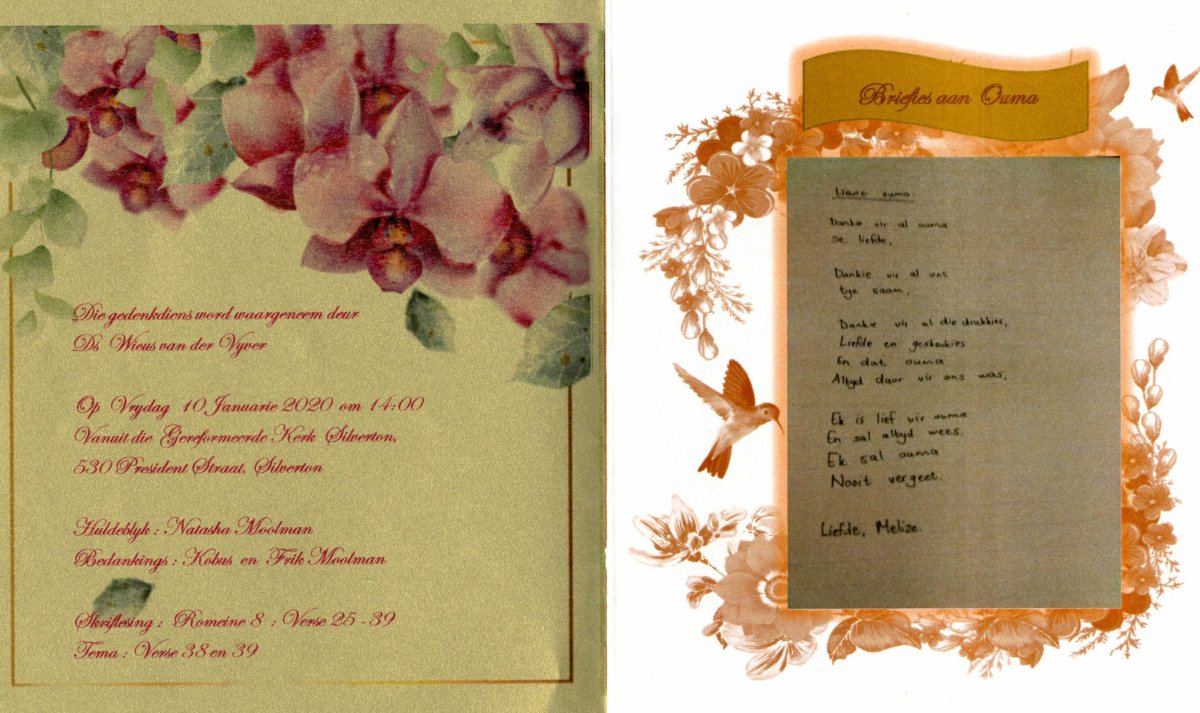 Die gedenkdiens word waargeneem deur
Ds Wicus van der Vyver
Op Vrydag 10 Januarie 2020 om 14:00
Vanuit die Gereformeerde Kerk Silverton,
530 President Straat, Silverton
Huldeblyk : Natasha Moolman
Bedankings : Kobus en Frik Moolman
Skriflesing : Romeine 8 : Verse 25 - 39
Tema : Verse 38 en 39
Briefies aan Ouma
Liewe ouma.
Dankie vir al ouma
se liefde,
Dankie vir al ons
tye saam,
Dankie vir al die drukkies,
Liefde en geskenkies
En dat ouma
Altyd daar vir ons was,
Ek is lief vir ouma
En sal altyd wees.
Ek sal ouma
Nooit vergeet.
Liefde, Melize.